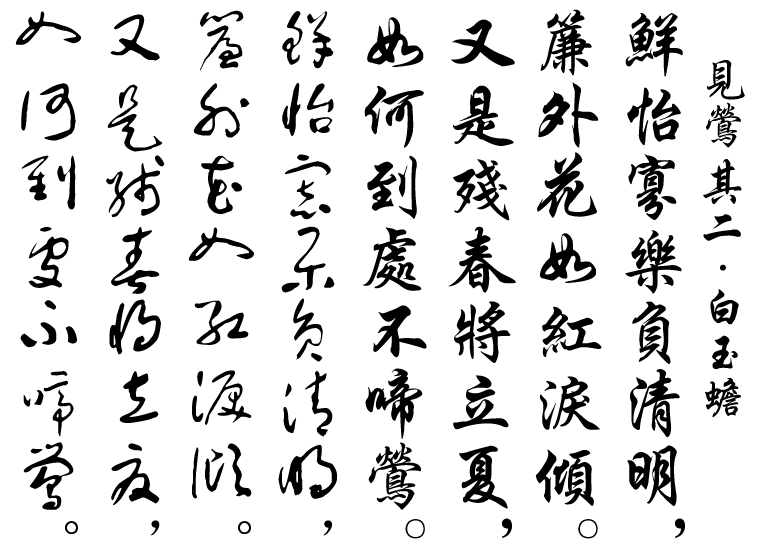 見鶯其二·白玉蟾
鮮怡寡樂負清明，
簾外花如紅淚傾。
又是殘春將立夏，
如何到處不啼鶯。
鮮怡寡樂負清明，
簾外花如紅淚傾。
又是殘春將立夏，
如何到處不啼鶯。